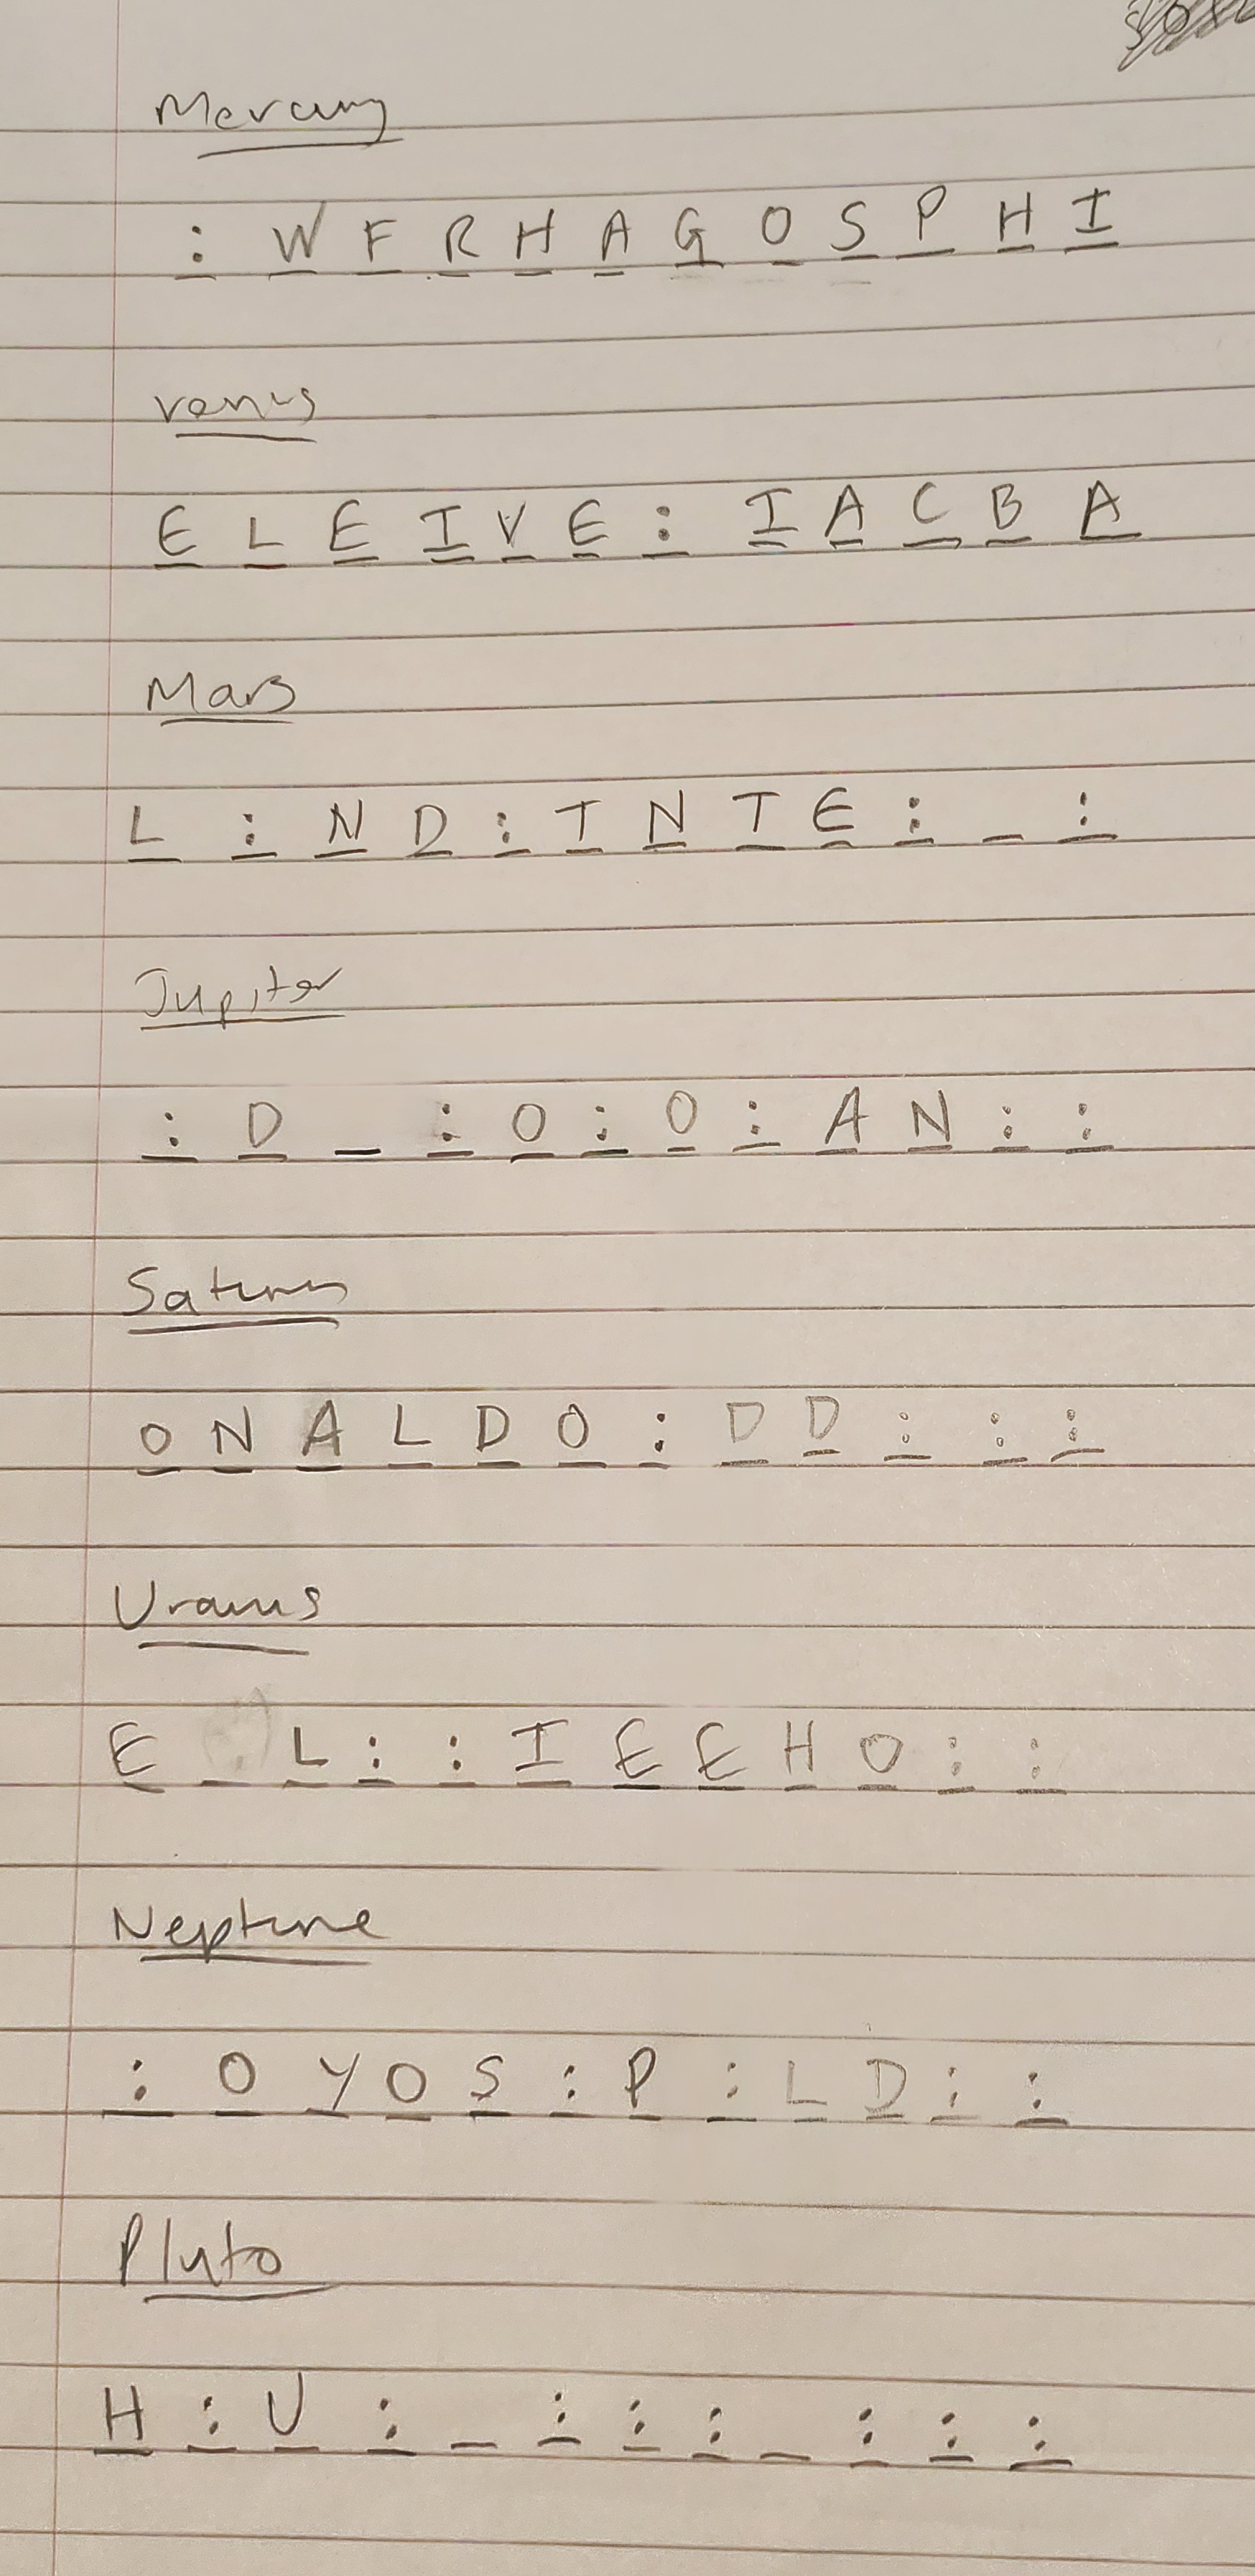 Mercury
: W F R H A G O S P H I
Venus
E L E I V E : I A C B A
Mars
L : N D : I N T E : _ :
Jupiter
: D _ : O : O : A N : :
Saturn
O N A L D O : D D : : :
Uranus
E _ L : : I E E H O : :
Neptune
: O Y O S : P : L D : :
Pluto
H : U : _ : : : _ : : :